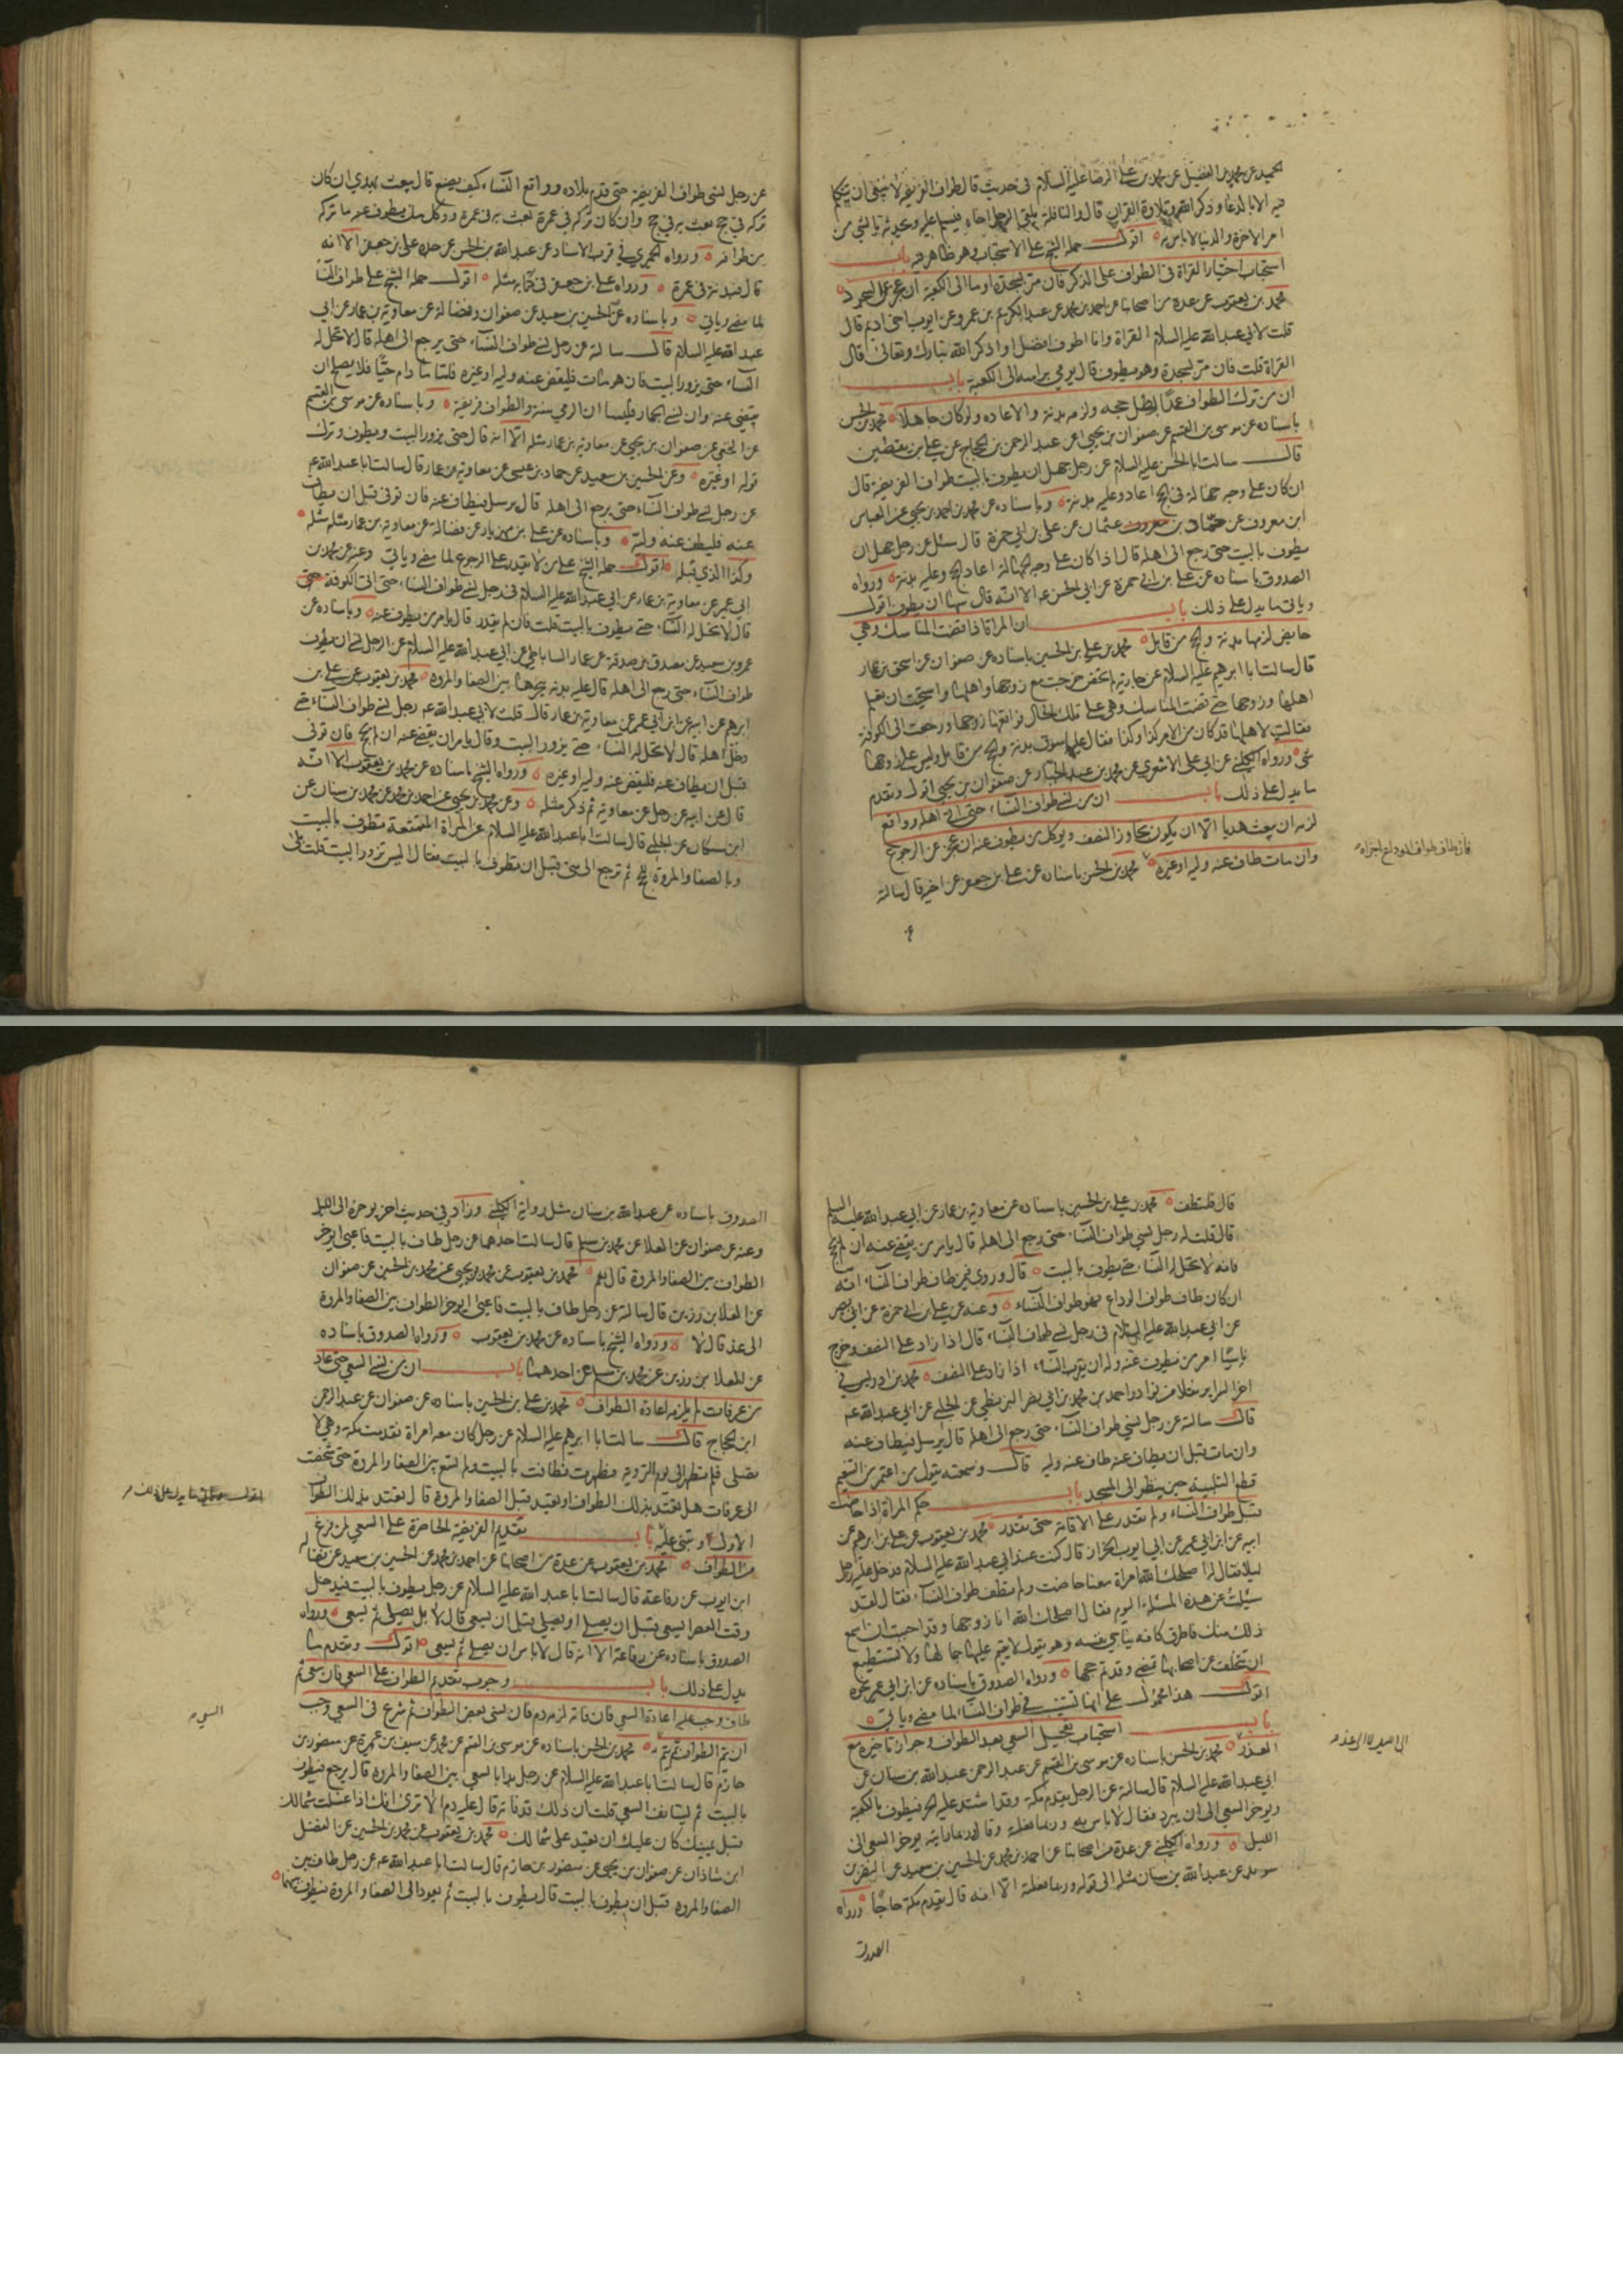 الحميد عن محمد بن الفضيل عن محمد بن علي الرضا عليه السلام في حديث قال طواف الفريضة لا ينبغي ان يتكلم
فيه الا بالدعا وذكر الله وتلاوة القران قال والنافلة يلقى الرجل اخاه فيسلم عليه ويحدثه بالشئ من
امر الاخرة والدنيا لا باس به اقول حمله الشيخ على الاستحباب وهو ظاهر فيه باب
استحباب اختيار القراة في الطواف على الذكر فان مر بسجدة اوما الى الكعبة ان عجز عن السجود
محمد بن يعقوب عن عدة من اصحابنا عن احمد بن محمد عن عبد الكريم بن عمرو عن ايوب اخي اديم قال
قلت لابي عبد الله عليه السلام القراة وانا اطوف افضل او اذكر الله تبارك وتعالى قال
القراة قلت فان مر بسجدة وهو يطوف قال يومي براسه الى الكعبة باب
ان من ترك الطواف عمدا بطل حجه ولزمه بدنة والاعاده ولو كان جاهلا محمد بن الحسن
باسناده عن موسى بن القسم عن صفوان بن يحيى عن عبد الرحمن بن الحجاج عن علي بن يقطين
قال سالت ابا الحسن عليه السلام عن رجل جهل ان يطوف بالبيت طواف الفريضة قال
ان كان على وجه جهالة في الحج اعاد وعليه بدنة وباسناده عن محمد بن احمد بن يحيى عن العباس
ابن معروف عن حماد بن عثمان عن علي بن ابي حمزة قال سئل عن رجل جهل ان
يطوف بالبيت حتى رجع الى اهله قال اذا كان على وجه الجهالة اعاد الحج وعليه بدنة ورواه
الصدوق باسناده عن علي بن ابي حمزة عن ابي الحسن عه الا انه قال سها ان يطوف اقول
وياتي ما يدل على ذلك باب ان المراة اذا قضت المناسك وهي
حايض لزمها بدنة والحج من قابل محمد بن علي بن الحسين باسناده عن صفوان عن اسحق بن عمار
قال سالت ابا ابرهيم عليه السلام عن جارية لم تحض خرجت مع زوجها واهلها واستحيت ان تعلم
اهلها وزوجها حتى قضت المناسك وهي على تلك الحال فواقعها زوجها ورجعت الى الكوفة
فقالت لاهلها قد كان من الامر كذا وكذا فقال عليها سوق بدنة والحج من قابل وليس على زوجها
شئ ورواه الكليني عن ابي علي الاشعري عن محمد بن عبد الجبار عن صفوان بن يحيى اقول وتقدم
ما يدل على ذلك باب ان من نسي طواف النساء حتى اتى اهله وواقع
لزمه ان يبعث هديا الا ان يكون تجاوز النصف ويوكل من يطوف عنه ان عجز عن الرجوع
وان مات طاف عنه وليه او غيره محمد بن الحسن باسناده عن علي بن جعفر عن اخيه قال سالته
فان طاف طواف الوداع اجزاه
عن رجل نسي طواف الفريضة حتى قدم بلاده وواقع النساء كيف يصنع قال يبعث بهدي ان كان
تركه في حج بعث به في حج وان كان تركه في عمرة بعث به في عمرة ووكل من يطوف عنه ما تركه
من طوافه ورواه الحميري في قرب الاسناد عن عبد الله بن الحسن عن جده علي بن جعفر الا انه
قال فبدنة في عمرة ورواه علي بن جعفر في كتابه مثله اقول حمله الشيخ على طواف النساء
لما مضى وياتي وباسناده عن الحسين بن سعيد عن صفوان وفضالة عن معاوية بن عمار عن ابي
عبد الله عليه السلام قال سالته عن رجل نسي طواف النساء حتى يرجع الى اهله قال لا تحل له
النساء حتى يزور البيت فان هو مات فليقض عنه وليه او غيره فلما ما دام حيا فلا يصلح ان
يقضى عنه وان نسي الجمار فليسا ان الرمي سنة والطواف فريضة وباسناده عن موسى بن القسم
عن النخعي عن صفوان بن يحيى عن معاوية بن عمار مثله الا انه قال حتى يزور البيت ويطوف وترك
قوله او غيره وعن الحسين بن سعيد عن حماد بن عيسى عن معاوية بن عمار قال سالت ابا عبد الله عه
عن رجل نسي طواف النساء حتى يرجع الى اهله قال يرسل فيطاف عنه فان توفى قبل ان يطاف
عنه فليطف عنه وليه وباسناده عن علي بن مهزيار عن فضالة عن معاوية بن عمار مثله
وكذا الذي قبله اقول حمله الشيخ على من لا يقدر على الرجوع لما مضى وياتي وعنه عن محمد بن
ابي عمير عن معاوية بن عمار عن ابي عبد الله عليه السلام في رجل نسي طواف النساء حتى اتى الكوفة
قال لا تحل له النساء حتى يطوف بالبيت قلت فان لم يقدر قال يامر من يطوف عنه وباسناده عن
عمرو بن سعيد عن مصدق بن صدقة عن عمار الساباطي عن ابي عبد الله عليه السلام عن الرجل نسي ان يطوف
طواف النساء حتى رجع الى اهله قال عليه بدنة ينحرها بين الصفا والمروة محمد بن يعقوب عن علي بن
ابرهيم عن ابيه عن ابن ابي عمير عن معاوية بن عمار قال قلت لابي عبد الله عه رجل نسي طواف النساء حتى
دخل اهله قال لا تحل له النساء حتى يزور البيت وقال يامر ان يقضى عنه ان لم يحج فان توفى
قبل ان يطاف عنه فليقض عنه وليه او غيره ورواه الشيخ باسناده عن محمد بن يعقوب الا انه
قال عن ابيه عن رجل عن معاوية ثم ذكر مثله وعن محمد بن يحيى عن احمد بن محمد عن محمد بن سنان عن
ابن مسكان عن الحلبي قال سالت ابا عبد الله عليه السلام عن المراة المتمتعة تطوف بالبيت
وبالصفا والمروة للحج ثم ترجع الى منى قبل ان تطوف بالبيت فقال اليس تزور البيت قلت بلى
قال فلتطف محمد بن علي بن الحسين باسناده عن معاوية بن عمار عن ابي عبد الله عليه السلام
قال قلت له رجل نسي طواف النساء حتى رجع الى اهله قال يامر من يقضي عنه ان لم يحج
فانه لا تحل له النساء حتى يطوف بالبيت قال وروي فيمن طاف طواف النساء انه
ان كان طاف طواف الوداع فهو طواف النساء وعنه عن علي بن ابي حمزة عن ابي بصير
عن ابي عبد الله عليه السلام في رجل نسي طواف النساء قال اذا زاد على النصف وخرج
ناسيا امر من يطوف عنه وله ان يقرب النساء اذا زاد على النصف محمد بن ادريس في
اخر السراير نقلا من نوادر احمد بن محمد بن ابي نصر البزنطي عن الحلبي عن ابي عبد الله عه
قال سالته عن رجل نسي طواف النساء حتى رجع الى اهله قال يرسل فيطاف عنه
وان مات قبل ان يطاف عنه طاف عنه وليه قال وسمعته يقول من اعتمر من التنعيم
قطع التلبية حين ينظر الى المسجد باب حكم المراة اذا حاضت
قبل طواف النساء ولم تقدر على الاقامة حتى تقدر محمد بن يعقوب عن علي بن ابرهيم عن
ابيه عن ابن ابي عمير عن ابي ايوب الخزاز قال كنت عند ابي عبد الله عليه السلام فدخل عليه رجل
ليلا فقال له اصلحك الله امراة معنا حاضت ولم تطف طواف النساء فقال لقد
سئلت عن هذه المسئلة اليوم فقال اصلحك الله انا زوجها وقد احببت ان اسمع
ذلك منك فاطرق كانه يناجي نفسه وهو يقول لا يقيم عليها جمالها ولا تستطيع
ان تتخلف عن اصحابها تمضي وقد تم حجها ورواه الصدوق باسناده عن ابن ابي عمير نحوه
اقول هذا محمول على انها تستنيب في طواف النساء لما مضى وياتي
باب استحباب تعجيل السعي بعد الطواف وجواز تاخيره مع
العذر محمد بن الحسن باسناده عن موسى بن القسم عن عبد الرحمن عن عبد الله بن سنان عن
ابي عبد الله عليه السلام قال سالته عن الرجل يقدم مكة وقد اشتد عليه الحر فيطوف بالكعبة
ويوخر السعي الى ان يبرد فقال لا باس به وربما فعلته وقال وربما رايته يوخر السعي الى
الليل ورواه الكليني عن عدة من اصحابنا عن احمد بن محمد عن الحسين بن سعيد عن النضر بن
سويد عن عبد الله بن سنان مثله الى قوله وربما فعلته الا انه قال يقدم مكة حاجا ورواه
الصدوق
الصدوق باسناده عن عبد الله بن سنان مثل رواية الكليني وزاد وفي حديث اخر يوخره الى الليل
وعنه عن صفوان عن العلا عن محمد بن مسلم قال سالت احدهما عن رجل طاف بالبيت فاعيى ايوخر
الطواف بين الصفا والمروة قال نعم محمد بن يعقوب عن محمد بن يحيى عن محمد بن الحسين عن صفوان
عن العلا بن رزين قال سالته عن رجل طاف بالبيت فاعيى ايوخر الطواف بين الصفا والمروة
الى غد قال لا ورواه الشيخ باسناده عن محمد بن يعقوب ورواه الصدوق باسناده
عن العلا بن رزين عن محمد بن مسلم عن احدهما باب ان من نسي السعي حتى عاد
من عرفات لم يلزمه اعادة الطواف محمد بن علي بن الحسين باسناده عن صفوان عن عبد الرحمن
ابن الحجاج قال سالت ابا ابرهيم عليه السلام عن رجل كان معه امراة فقدمت مكة وهي لا
تصلي فلم تطهر الى يوم التروية فطهرت فطافت بالبيت ولم تسع بين الصفا والمروة حتى شخصت
الى عرفات هل تعتد بذلك الطواف او تعيد قبل الصفا والمروة قال تعتد بذلك الطواف
الاول وتبني عليه باب تقديم الفريضة الحاضرة على السعي لمن فرغ
من الطواف محمد بن يعقوب عن عدة من اصحابنا عن احمد بن محمد عن الحسين بن سعيد عن فضاله
ابن ايوب عن رفاعة قال سالت ابا عبد الله عليه السلام عن رجل يطوف بالبيت فيدخل
وقت العصر ايسعى قبل ان يصلي او يصلي قبل ان يسعى قال لا بل يصلي ثم يسعى ورواه
الصدوق باسناده عن رفاعة الا انه قال لا باس ان يصلي ثم يسعى اقول وتقدم ما
يدل على ذلك باب وجوب تقديم الطواف على السعي فان سعى ثم
طاف وجب عليه اعادة السعي فان فاته لزمه دم فان نسي بعض الطواف ثم شرع في السعي وجب
ان يتم الطواف ثم يتم محمد بن الحسن باسناده عن موسى بن القسم عن محمد عن سيف بن عميرة عن منصور بن
حازم قال سالت ابا عبد الله عليه السلام عن رجل بدا بالسعي بين الصفا والمروة قال يرجع فيطوف
بالبيت ثم يستانف السعي قلت ان ذلك قد فاته قال عليه دم الا ترى انك اذا غسلت شمالك
قبل يمينك كان عليك ان تعيد على شمالك محمد بن يعقوب عن محمد بن الحسين عن الفضل
ابن شاذان عن صفوان بن يحيى عن منصور بن حازم قال سالت ابا عبد الله عه عن رجل طاف بين
الصفا والمروه قبل ان يطوف بالبيت قال يطوف بالبيت ثم يعود الى الصفا والمروة فيطوف بينهما
السعي